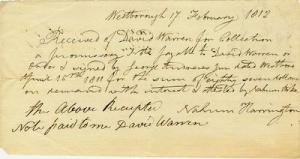 Westborough 17 February 1812
Received of David Warren for Collection
a promissory Note payable to David Warren or
order & signed by George
April 16th 1811 for the sum of eighty seven dollars
on demand with interest
the Above Receipted Nahum Harrington
Note paid to me David Warren